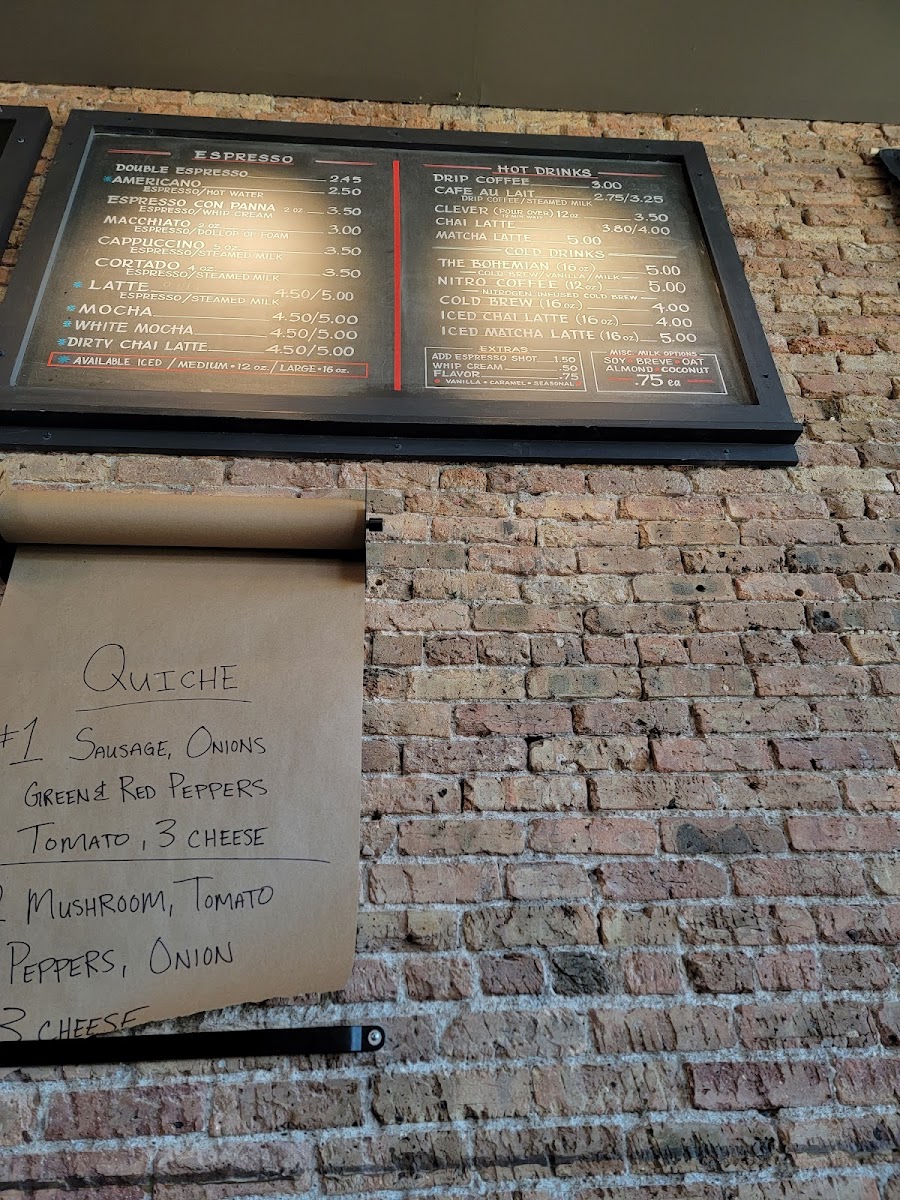 ESPRESSO
DOUBLE ESPRESSO 2.45
*AMERICANO 2.50
ESPRESSO/HOT WATER
ESPRESSO CON PANNA 2 oz 3.50
ESPRESSO/WHIP CREAM
MACCHIATO 3.00
ESPRESSO/DOLLOP OF FOAM
CAPPUCCINO 5 oz. 3.50
ESPRESSO/STEAMED MILK
CORTADO 4 oz 3.50
ESPRESSO/STEAMED MILK
* LATTE 4.50/5.00
ESPRESSO/STEAMED MILK
* MOCHA 4.50/5.00
* WHITE MOCHA 4.50/5.00
*DIRTY CHAI LATTE 4.50/5.00
* AVAILABLE ICED / MEDIUM • 12 oz. / LARGE • 16 oz.
HOT DRINKS
DRIP COFFEE 3.00
CAFE AU LAIT 2.75/3.25
DRIP COFFEE/STEAMED MILK
CLEVER (POUR OVER) 12oz 3.50
CHAI LATTE 3.80/4.00
MATCHA LATTE 5.00
COLD DRINKS
THE BOHEMIAN (16 oz) 5.00
COLD BREW/VANILLA/MILK
NITRO COFFEE (12 oz) 5.00
NITROGEN INFUSED COLD BREW
COLD BREW (16 oz) 4.00
ICED CHAI LATTE (16 oz) 4.00
ICED MATCHA LATTE (16 oz) 5.00
EXTRAS
ADD ESPRESSO SHOT 1.50
WHIP CREAM .50
FLAVOR .75
* VANILLA • CARAMEL • SEASONAL
MISC. MILK OPTIONS
SOY • BREVE • OAT
ALMOND • COCONUT
.75 ea
QUICHE
#1 SAUSAGE, ONIONS
GREEN & RED PEPPERS
TOMATO, 3 CHEESE
2 MUSHROOM, TOMATO
PEPPERS, ONION
3 CHEESE